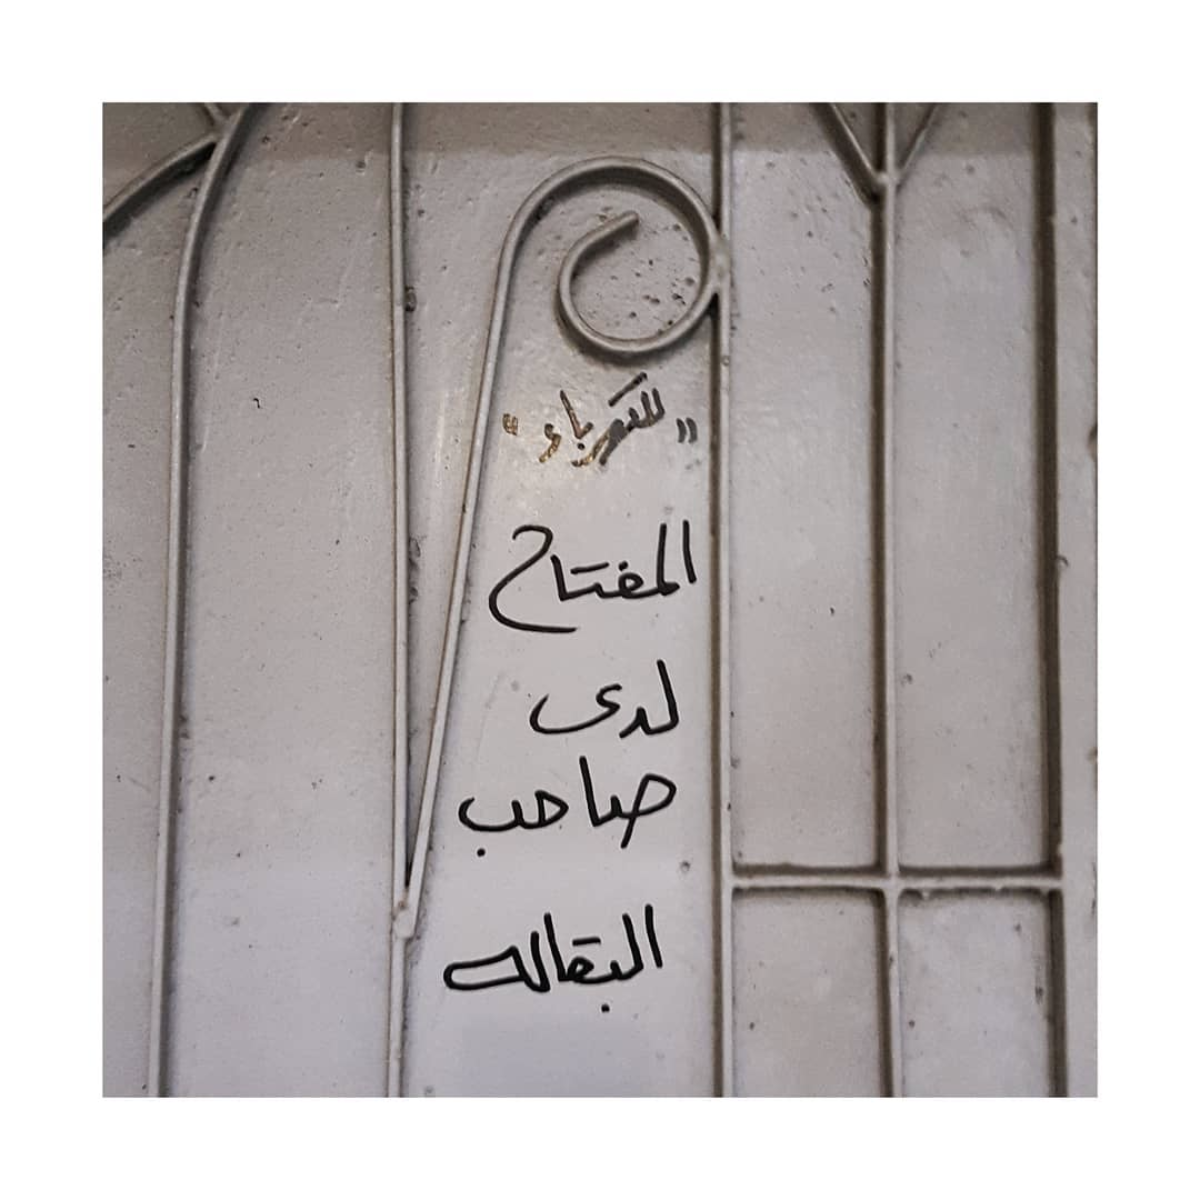 "للكهرباء"
المفتاح
لدى
صاحب
البقاله